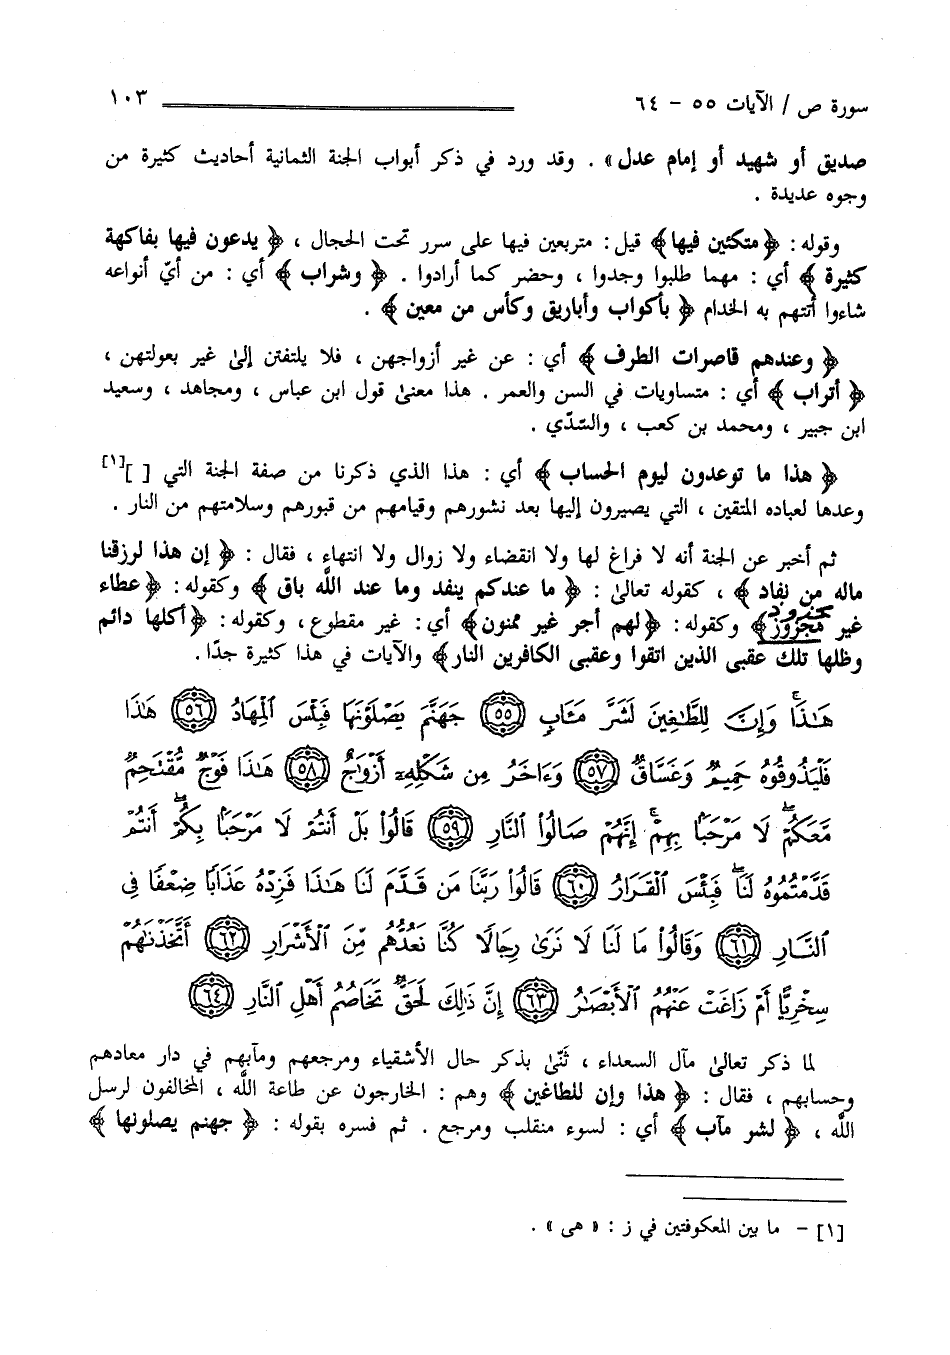 سورة ص / الآيات ٥٥ - ٦٤ ١٠٣
صديق أو شهيد أو إمام عدل» . وقد ورد في ذكر أبواب الجنة الثمانية أحاديث كثيرة من
وجوه عديدة .
وقوله : ﴿ متكئين فيها﴾ قيل : متربعين فيها على سرر تحت الحجال ، ﴿ يدعون فيها بفاكهة
كثيرة ﴾ أي : مهما طلبوا وجدوا ، وحضر كما أرادوا . ﴿ وشراب ﴾ أي : من أيّ أنواعه
شاءوا أتتهم به الخدام ﴿ بأكواب وأباريق وكأس من معين ﴾ .
﴿ وعندهم قاصرات الطرف ﴾ أي : عن غير أزواجهن ، فلا يلتفتن إلىٰ غير بعولتهن ،
﴿ أتراب ﴾ أي : متساويات في السن والعمر . هذا معنىٰ قول ابن عباس ، ومجاهد ، وسعيد
ابن جبير ، ومحمد بن كعب ، والسّدّي .
﴿ هذا ما توعدون ليوم الحساب ﴾ أي : هذا الذي ذكرنا من صفة الجنة التي [ ][١]
وعدها لعباده المتقين ، التي يصيرون إليها بعد نشورهم وقيامهم من قبورهم وسلامتهم من النار .
ثم أخبر عن الجنة أنه لا فراغ لها ولا انقضاء ولا زوال ولا انتهاء ، فقال : ﴿ إن هذا لرزقنا
ماله من نفاد ﴾ ، كقوله تعالىٰ : ﴿ ما عندكم ينفد وما عند اللَّه باق ﴾ وكقوله : ﴿ عطاء
غير مجزوز﴾ مجذوذ وكقوله : ﴿لهم أجر غير ممنون﴾ أي : غير مقطوع ، وكقوله : ﴿أكلها دائم
وظلها تلك عقبى الذين اتقوا وعقبى الكافرين النار﴾ والآيات في هذا كثيرة جدًّا .
هَٰذَا ۚ وَإِنَّ لِلطَّٰغِينَ لَشَرَّ مَـَٔابٍ ۝٥٥ جَهَنَّمَ يَصْلَوْنَهَا فَبِئْسَ ٱلْمِهَادُ ۝٥٦ هَٰذَا
فَلْيَذُوقُوهُ حَمِيمٌ وَغَسَّاقٌ ۝٥٧ وَءَاخَرُ مِن شَكْلِهِۦٓ أَزْوَٰجٌ ۝٥٨ هَٰذَا فَوْجٌ مُّقْتَحِمٌ
مَّعَكُمْ ۖ لَا مَرْحَبًۢا بِهِمْ ۚ إِنَّهُمْ صَالُوا۟ ٱلنَّارِ ۝٥٩ قَالُوا۟ بَلْ أَنتُمْ لَا مَرْحَبًۢا بِكُمْ ۖ أَنتُمْ
قَدَّمْتُمُوهُ لَنَا ۖ فَبِئْسَ ٱلْقَرَارُ ۝٦٠ قَالُوا۟ رَبَّنَا مَن قَدَّمَ لَنَا هَٰذَا فَزِدْهُ عَذَابًا ضِعْفًا فِى
ٱلنَّارِ ۝٦١ وَقَالُوا۟ مَا لَنَا لَا نَرَىٰ رِجَالًا كُنَّا نَعُدُّهُم مِّنَ ٱلْأَشْرَارِ ۝٦٢ أَتَّخَذْنَٰهُمْ
سِخْرِيًّا أَمْ زَاغَتْ عَنْهُمُ ٱلْأَبْصَٰرُ ۝٦٣ إِنَّ ذَٰلِكَ لَحَقٌّ تَخَاصُمُ أَهْلِ ٱلنَّارِ ۝٦٤
لما ذكر تعالىٰ مآل السعداء ، ثَنَّىٰ بذكر حال الأشقياء ومرجعهم ومآبهم في دار معادهم
وحسابهم ، فقال : ﴿ هذا وإن للطاغين ﴾ وهم : الخارجون عن طاعة اللَّه ، المخالفون لرسل
اللَّه ، ﴿ لشر مآب ﴾ أي : لسوء منقلب ومرجع . ثم فسره بقوله : ﴿ جهنم يصلونها ﴾
[١] - ما بين المعكوفتين في ز : « هى » .